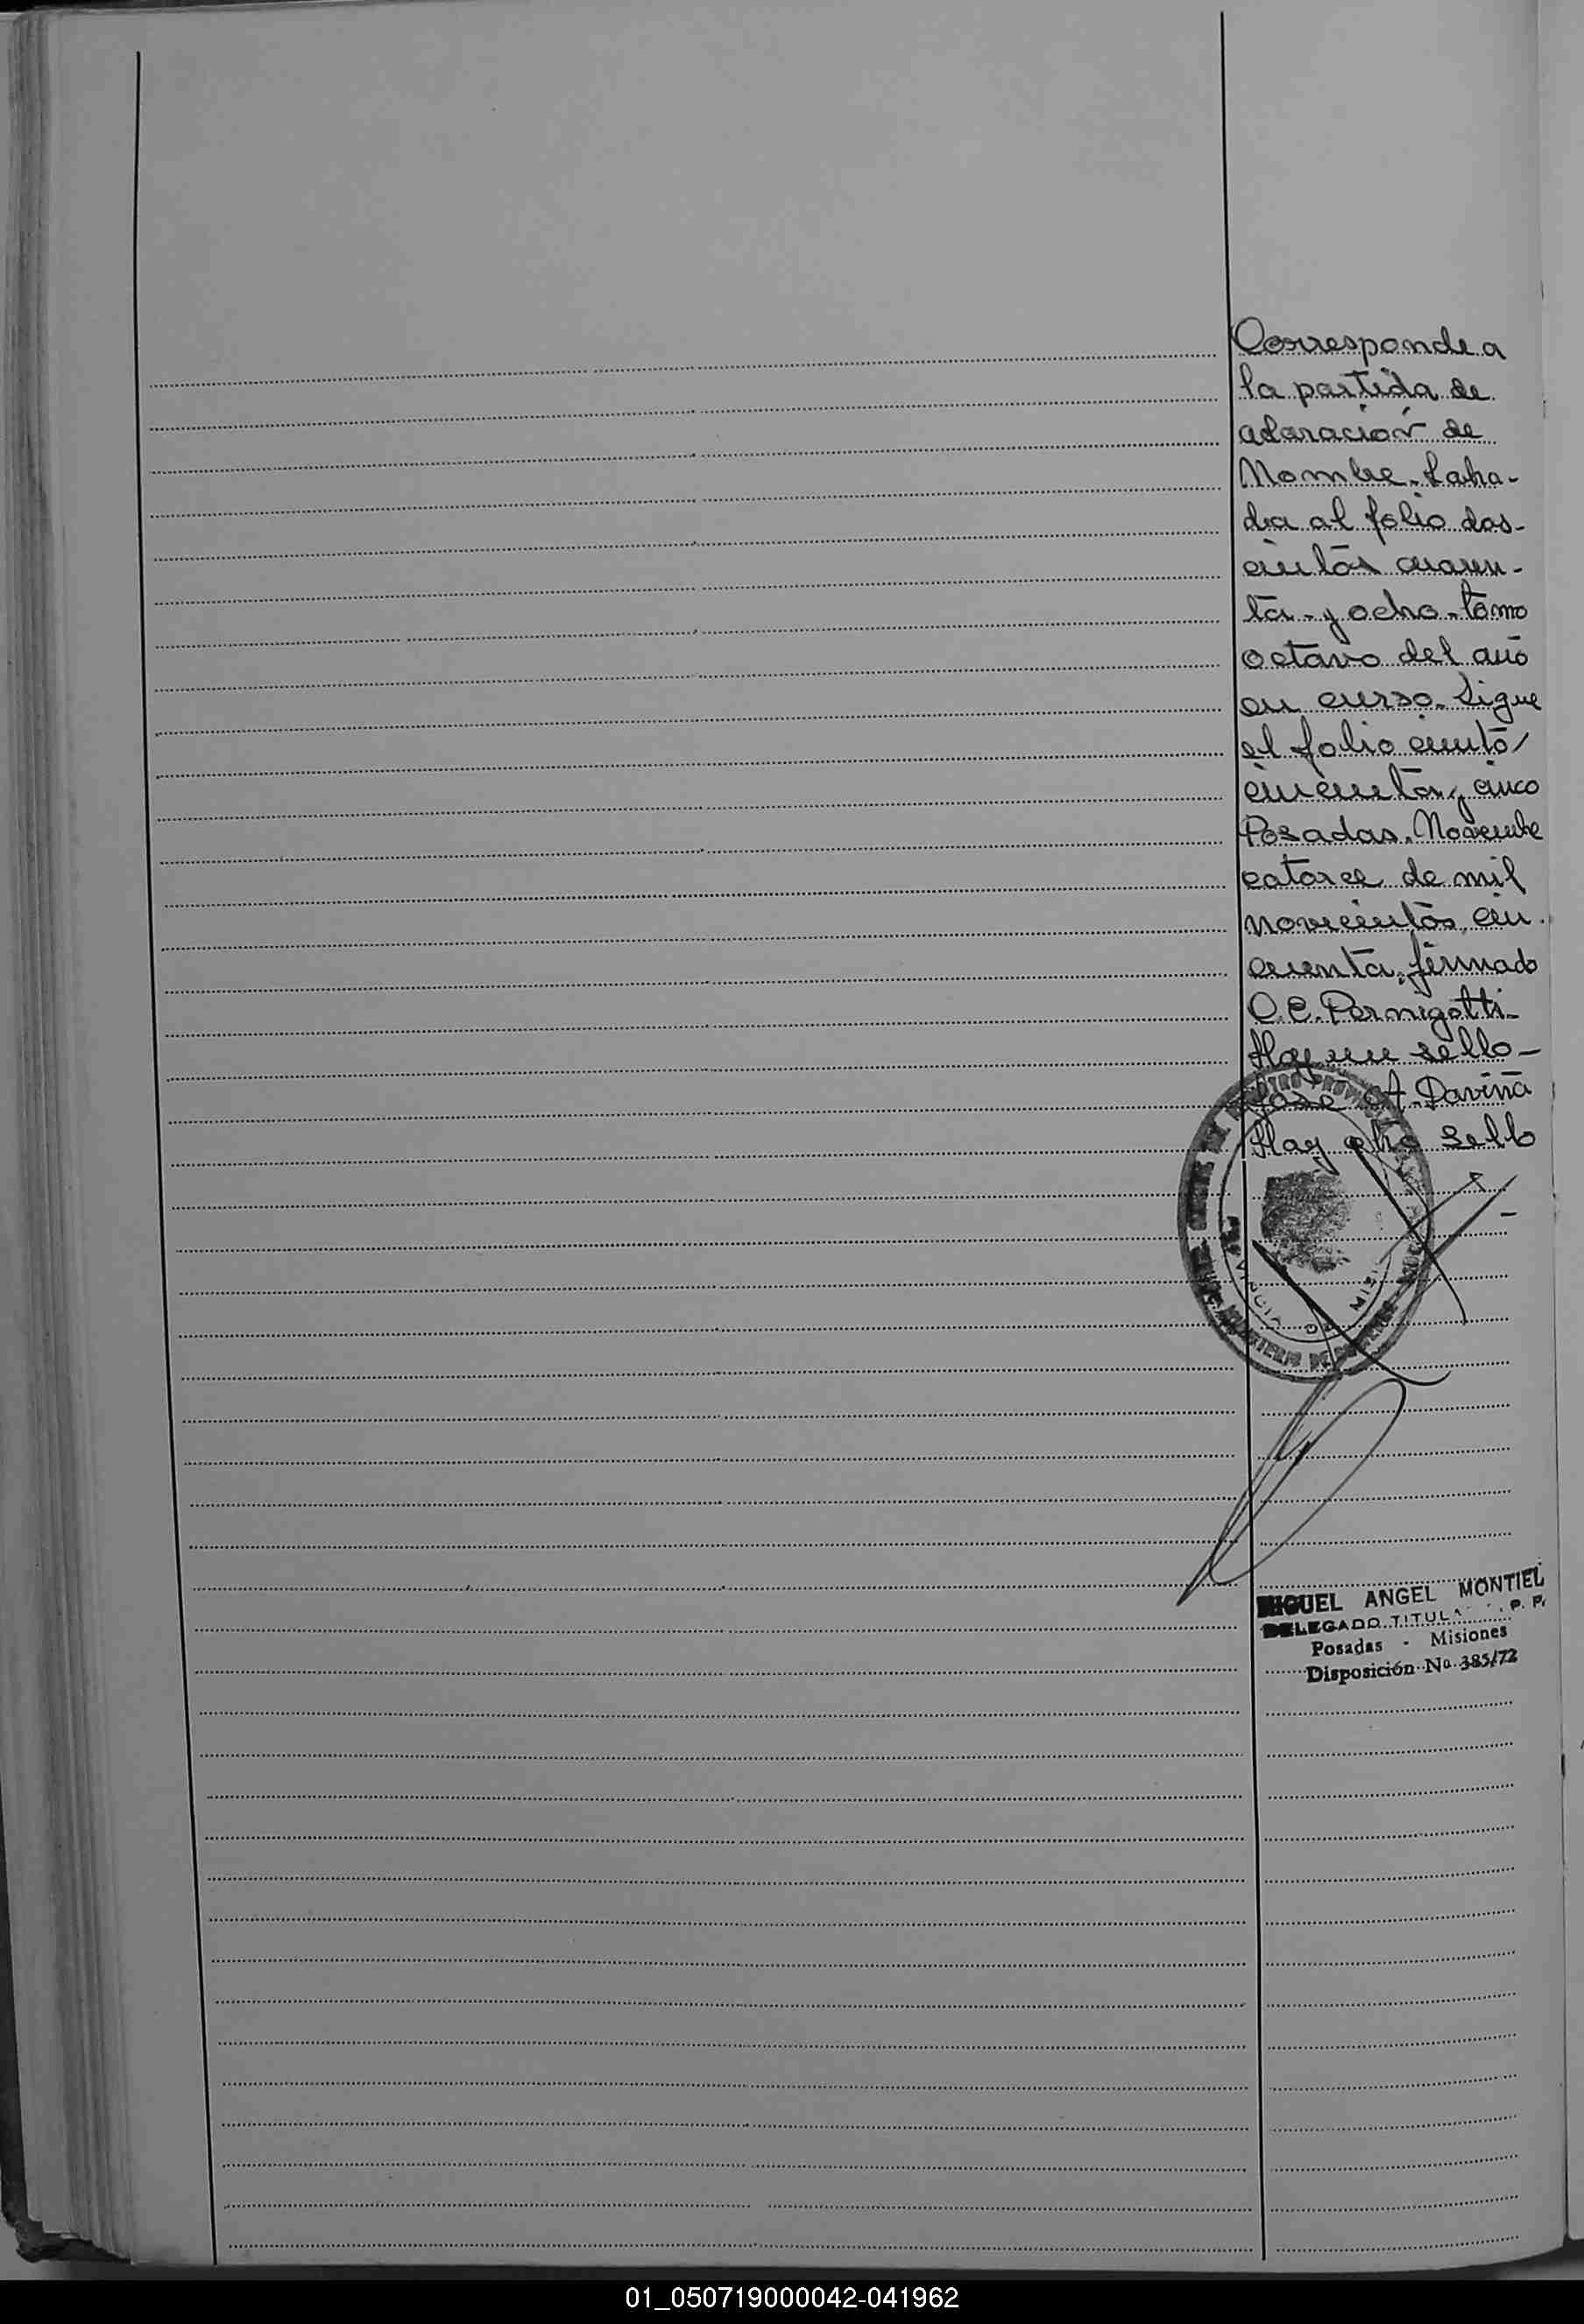 Corresponde a
la partida de
aclaración de
Nombre. Labra-
da al folio dos-
cientos cuaren-
ta y ocho. tomo
octavo del año
en curso. Sigue
el folio ciento
cincuenta y cinco
Posadas. Noviembre
catorce de mil
novecientos cin-
cuenta. firmado
C. C. Pernigotti-
Hay un sello-
Jose A. Daviña
Hay otro sello
PROVINCIA DE MISI
MIGUEL ANGEL MONTIEL
DELEGADO TITULA P. P.
Posadas - Misiones
Disposición No 385/72
01_050719000042-041962